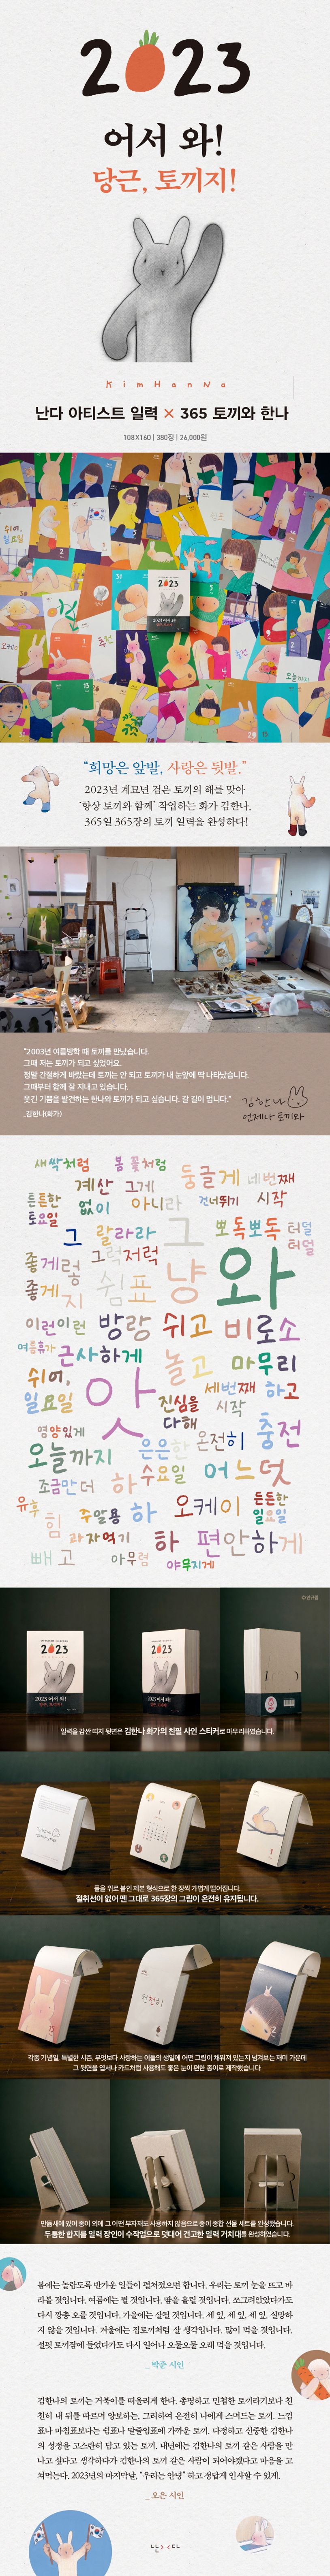 2023
어서 와!
당근, 토끼지!
KimHanNa
난다 아티스트 일력 × 365 토끼와 한나
108X160 | 380장 | 26,000원
쉬어,
일요일
추천
2023
2023 어서 와!
"희망은 앞발, 사랑은 뒷발."
2023년 계묘년 검은 토끼의 해를 맞아
'항상 토끼와 함께' 작업하는 화가 김한나,
365일 365장의 토끼 일력을 완성하다!
"2003년 여름방학 때 토끼를 만났습니다.
그때 저는 토끼가 되고 싶었어요.
정말 간절하게 바랐는데 토끼는 안 되고 토끼가 내 눈앞에 딱 나타났습니다.
그때부터 함께 잘 지내고 있습니다.
웃긴 기쁨을 발견하는 한나와 토끼가 되고 싶습니다. 갈 길이 멉니다."
_김한나(화가)
김한나
언제나 토끼와
새싹처럼 봄 꽃처럼 둥글게 네 번째
계산 그게
튼튼한 없이 아니라 건너뛰기 시작
토요일 그 랄라라 그 뽀독뽀독 터덜
터덜
좋게 그럭저럭
좋게 쉼표 냥 와
이런이런 방랑 쉬고 비로소
여름휴가 근사하게 놀고 마무리
쉬어, 세 번째 하고
일요일 앗 진심을 시작
다해
영양있게 온전히 충전
오늘까지 은은한
조금만 더 하 수요일 어느덧
유후 힘 주말용 하 오케이 든든한
일요일
과자먹기 하 편안하게
빼고 아무렴 야무지게
2023
2023 어서 와!
2023
2023 어서 와!
일력을 감싼 띠지 뒷면은 김한나 화가의 친필 사인 스티커로 마무리하였습니다.
풀을 위로 붙인 제본 형식으로 한 장씩 가볍게 떨어집니다.
절취선이 없어 뗀 그대로 365장의 그림이 온전히 유지됩니다.
천천히
각종 기념일, 특별한 시즌, 무엇보다 사랑하는 이들의 생일에 어떤 그림이 채워져 있는지 넘겨보는 재미 가운데
그 뒷면을 엽서나 카드처럼 사용해도 좋은 눈이 편한 종이로 제작했습니다.
만듦새에 있어 종이 외에 그 어떤 부자재도 사용하지 않음으로 종이 종합 선물 세트를 완성했습니다.
두툼한 합지를 일력 장인이 수작업으로 덧대어 견고한 일력 거치대를 완성하였습니다.
봄에는 놀랍도록 반가운 일들이 펼쳐졌으면 합니다. 우리는 토끼 눈을 뜨고 바
라볼 것입니다. 여름에는 뛸 것입니다. 땀을 흘릴 것입니다. 쪼그려앉았다가도
다시 깡총 오를 것입니다. 가을에는 살필 것입니다. 세 잎, 세 잎, 세 잎, 실망하
지 않을 것입니다. 겨울에는 집토끼처럼 살 생각입니다. 많이 먹을 것입니다.
설핏 토끼잠에 들었다가도 다시 일어나 오물오물 오래 먹을 것입니다.
_ 박준 시인
김한나의 토끼는 거북이를 떠올리게 한다. 총명하고 민첩한 토끼라기보다 천
천히 내 뒤를 따르며 양보하는, 그리하여 온전히 나에게 스며드는 토끼. 느낌
표나 마침표보다는 쉼표나 말줄임표에 가까운 토끼. 다정하고 신중한 김한나
의 성정을 고스란히 담고 있는 토끼. 내년에는 김한나의 토끼 같은 사람을 만
나고 싶다고 생각하다가 김한나의 토끼 같은 사람이 되어야겠다고 마음을 고
쳐먹는다. 2023년의 마지막날, "우리는 안녕" 하고 정답게 인사할 수 있게.
_ 오은 시인
난다